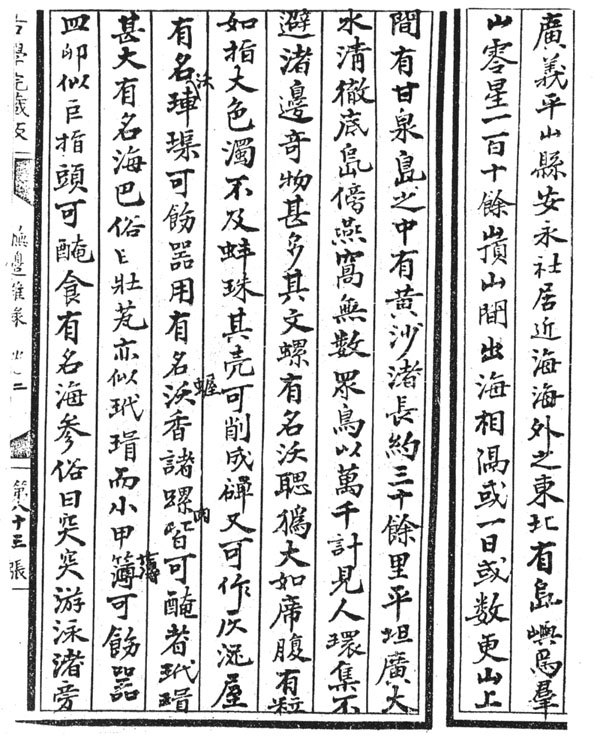 廣義平山縣安永社居近海海外之東北有島嶼焉羣
山零星一百十餘嶺山間出海相隔或一日或数更山上
間有甘泉島之中有黄沙渚長約三十餘里平坦廣大
水清徹底島傍燕窩無數眾鳥以萬千計見人環集不
避渚邊竒物甚多其文螺有名沃聰大如席腹有粒
如指大色濁不及蚌珠其壳可削成碑又可作灰泥屋
沃
有名璖可飭器用有名沃香諸螺皆可醃者玳瑁
肉
甚大有名海巴俗曰壯芃亦似玳瑁而小甲簿可飭器
薄
皿卵似巨指頭可醃食有名海参俗曰突突游泳渚旁
古學院藏板
撫邊雜彔
第八十三張